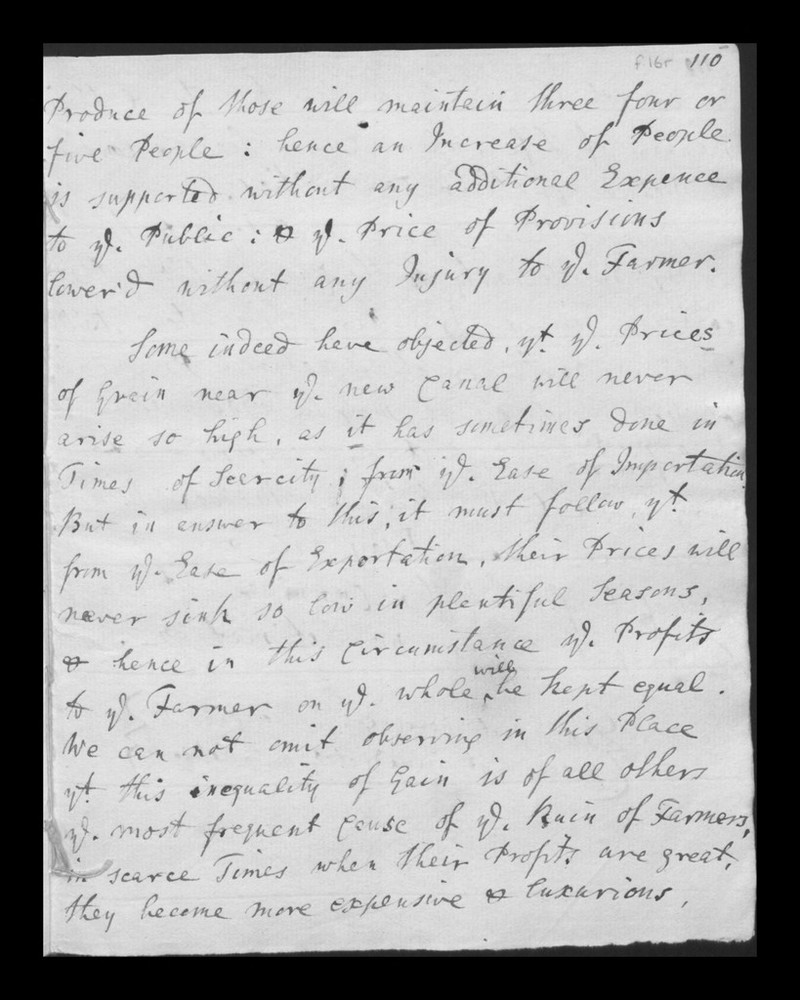 f16r 110
Produce of those will maintain three four or
five People : hence an Increase of People
is supported without any additional Expence
to ye. Public : & ye. Price of Provisions
lower'd without any Injury to ye. Farmer.
Some indeed have objected, yt. ye. Prices
of Grain near ye. new Canal will never
arise so high, as it has sometimes done in
Times of Scercity ; from ye. Ease of Importation
But in answer to this, it must follow, yt.
from ye. Ease of Exportation, their Prices will
never sink so low in plentiful Seasons,
& hence in this Circumstance ye. Profits
will
to ye. Farmer on ye. whole ‸be kept equal.
We can not omit observing in this Place
yt. this inequality of Gain is of all others
ye. most frequent Cause of ye. Ruin of Farmers,
in scarce Times when their Profits are great,
they become more expensive & luxurious,